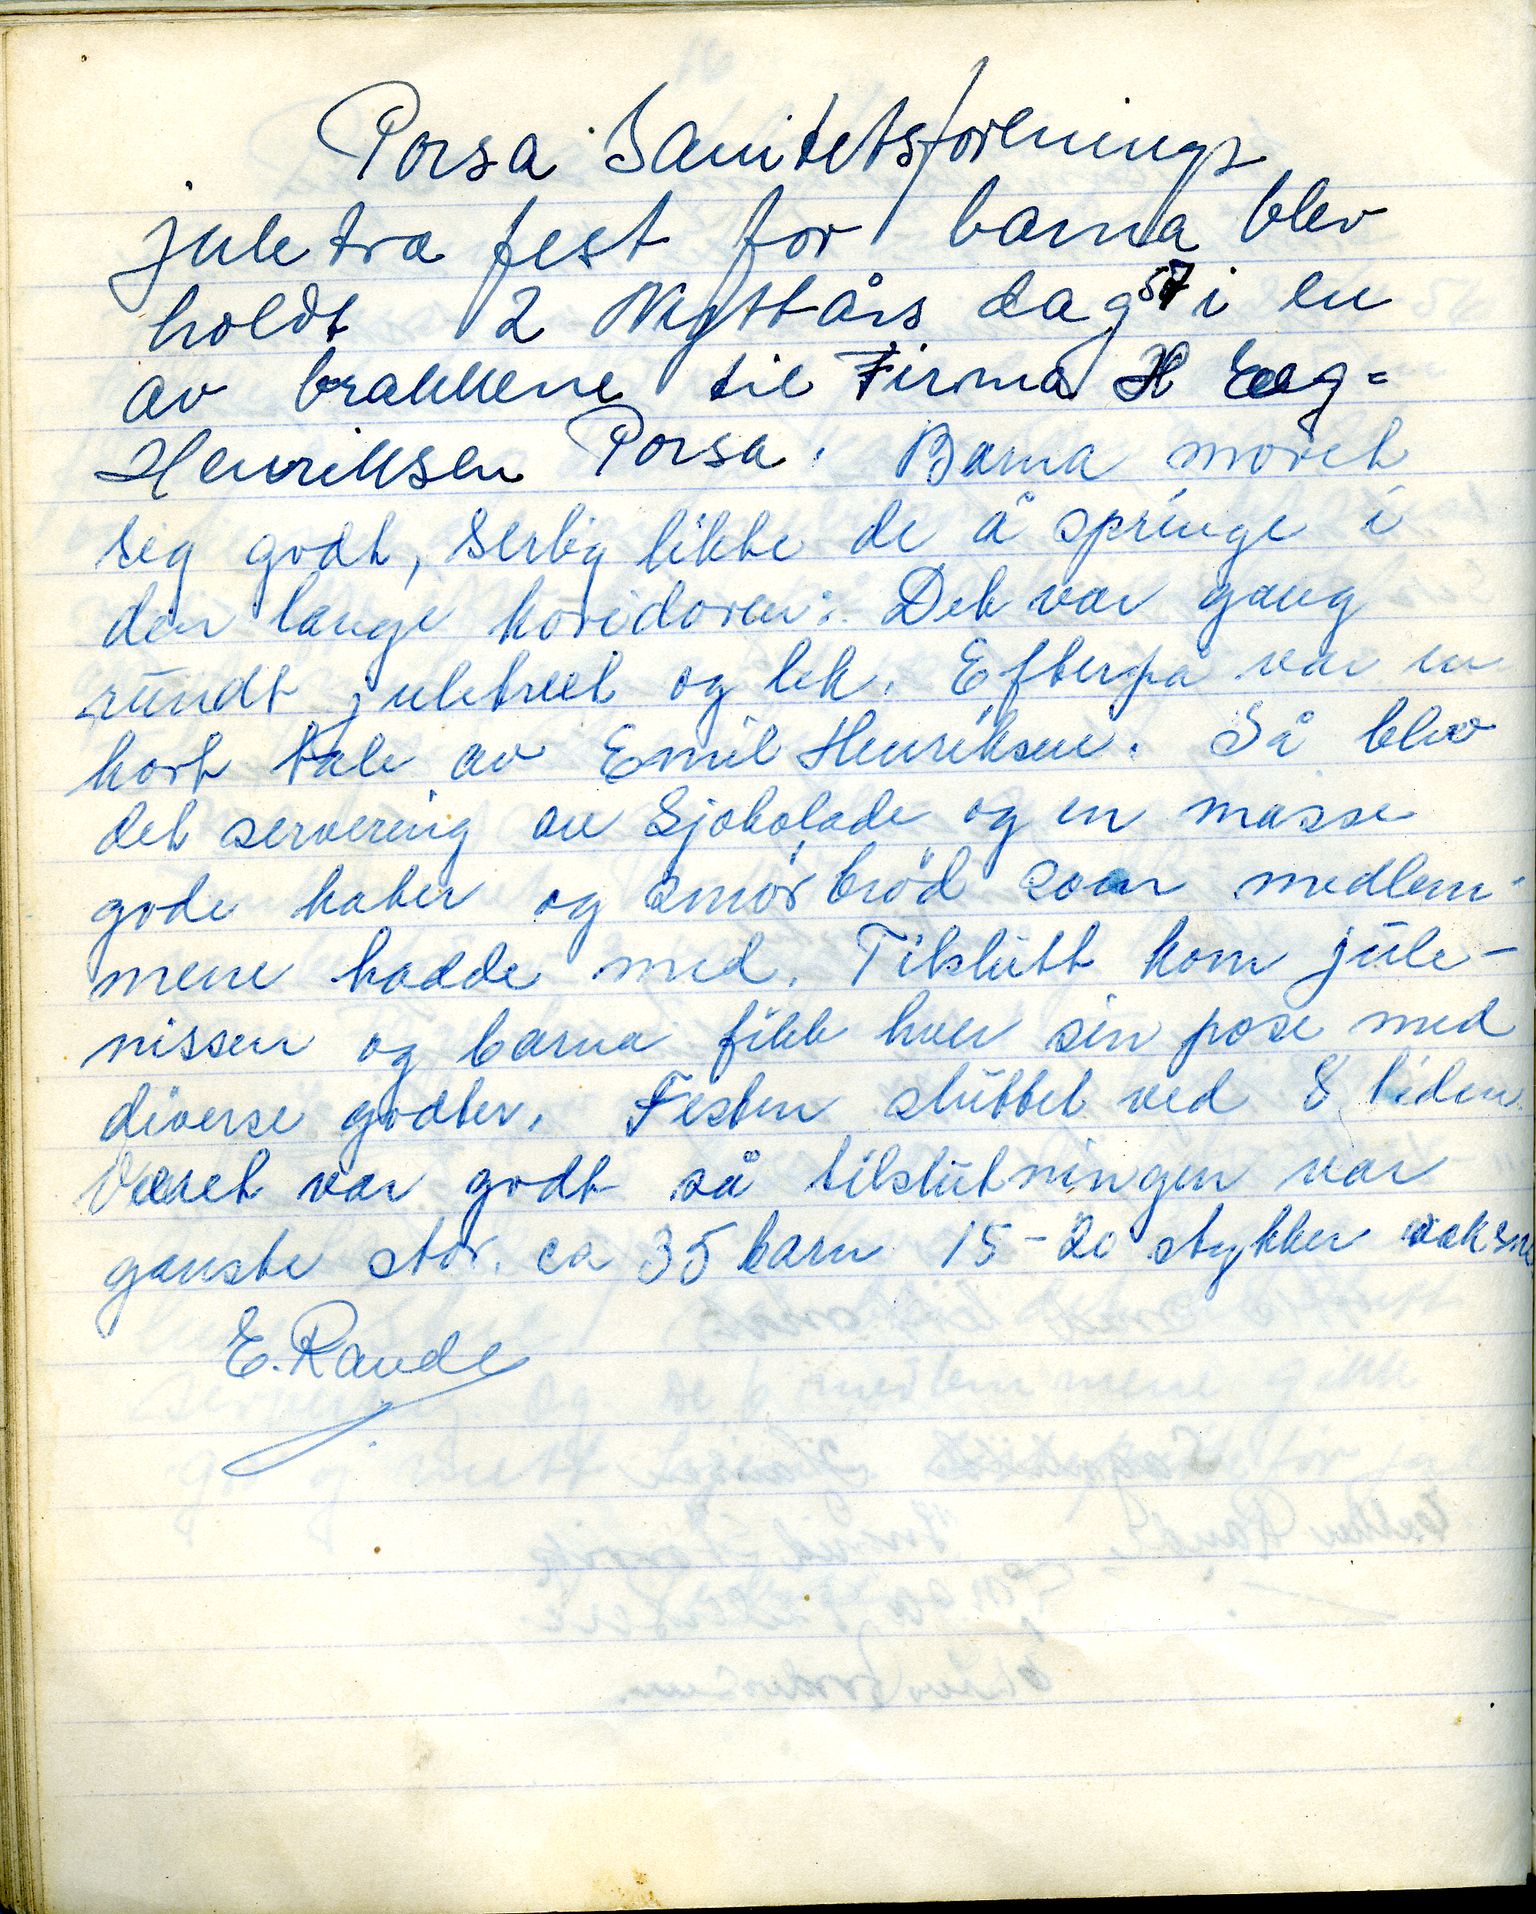 Porsa Sanitetsforenings
juletra fest for barna blev
holdt 2 Nyttårs dag 57 i en
av brakkene til Firma H Eeg=
Henriksen Porsa. Barna moret
seg godt, serlig likte de å springe i
den lange koridoren. Det var gang
rundt juletreet og lek. Efterpå var en
kort tale av Emil Henriksen. Så blev
det servering av Sjokolade og en masse
gode kaker og smørbrød som medlem-
mene hadde med. Tilslutt kom jule-
nissen og barna fikk hver sin pose med
diverse godter. Festen sluttet ved 8 tiden
Været var godt så tilslutningen var
ganske stor. ca 35 barn 15-20 stykker voksne
E. Rande